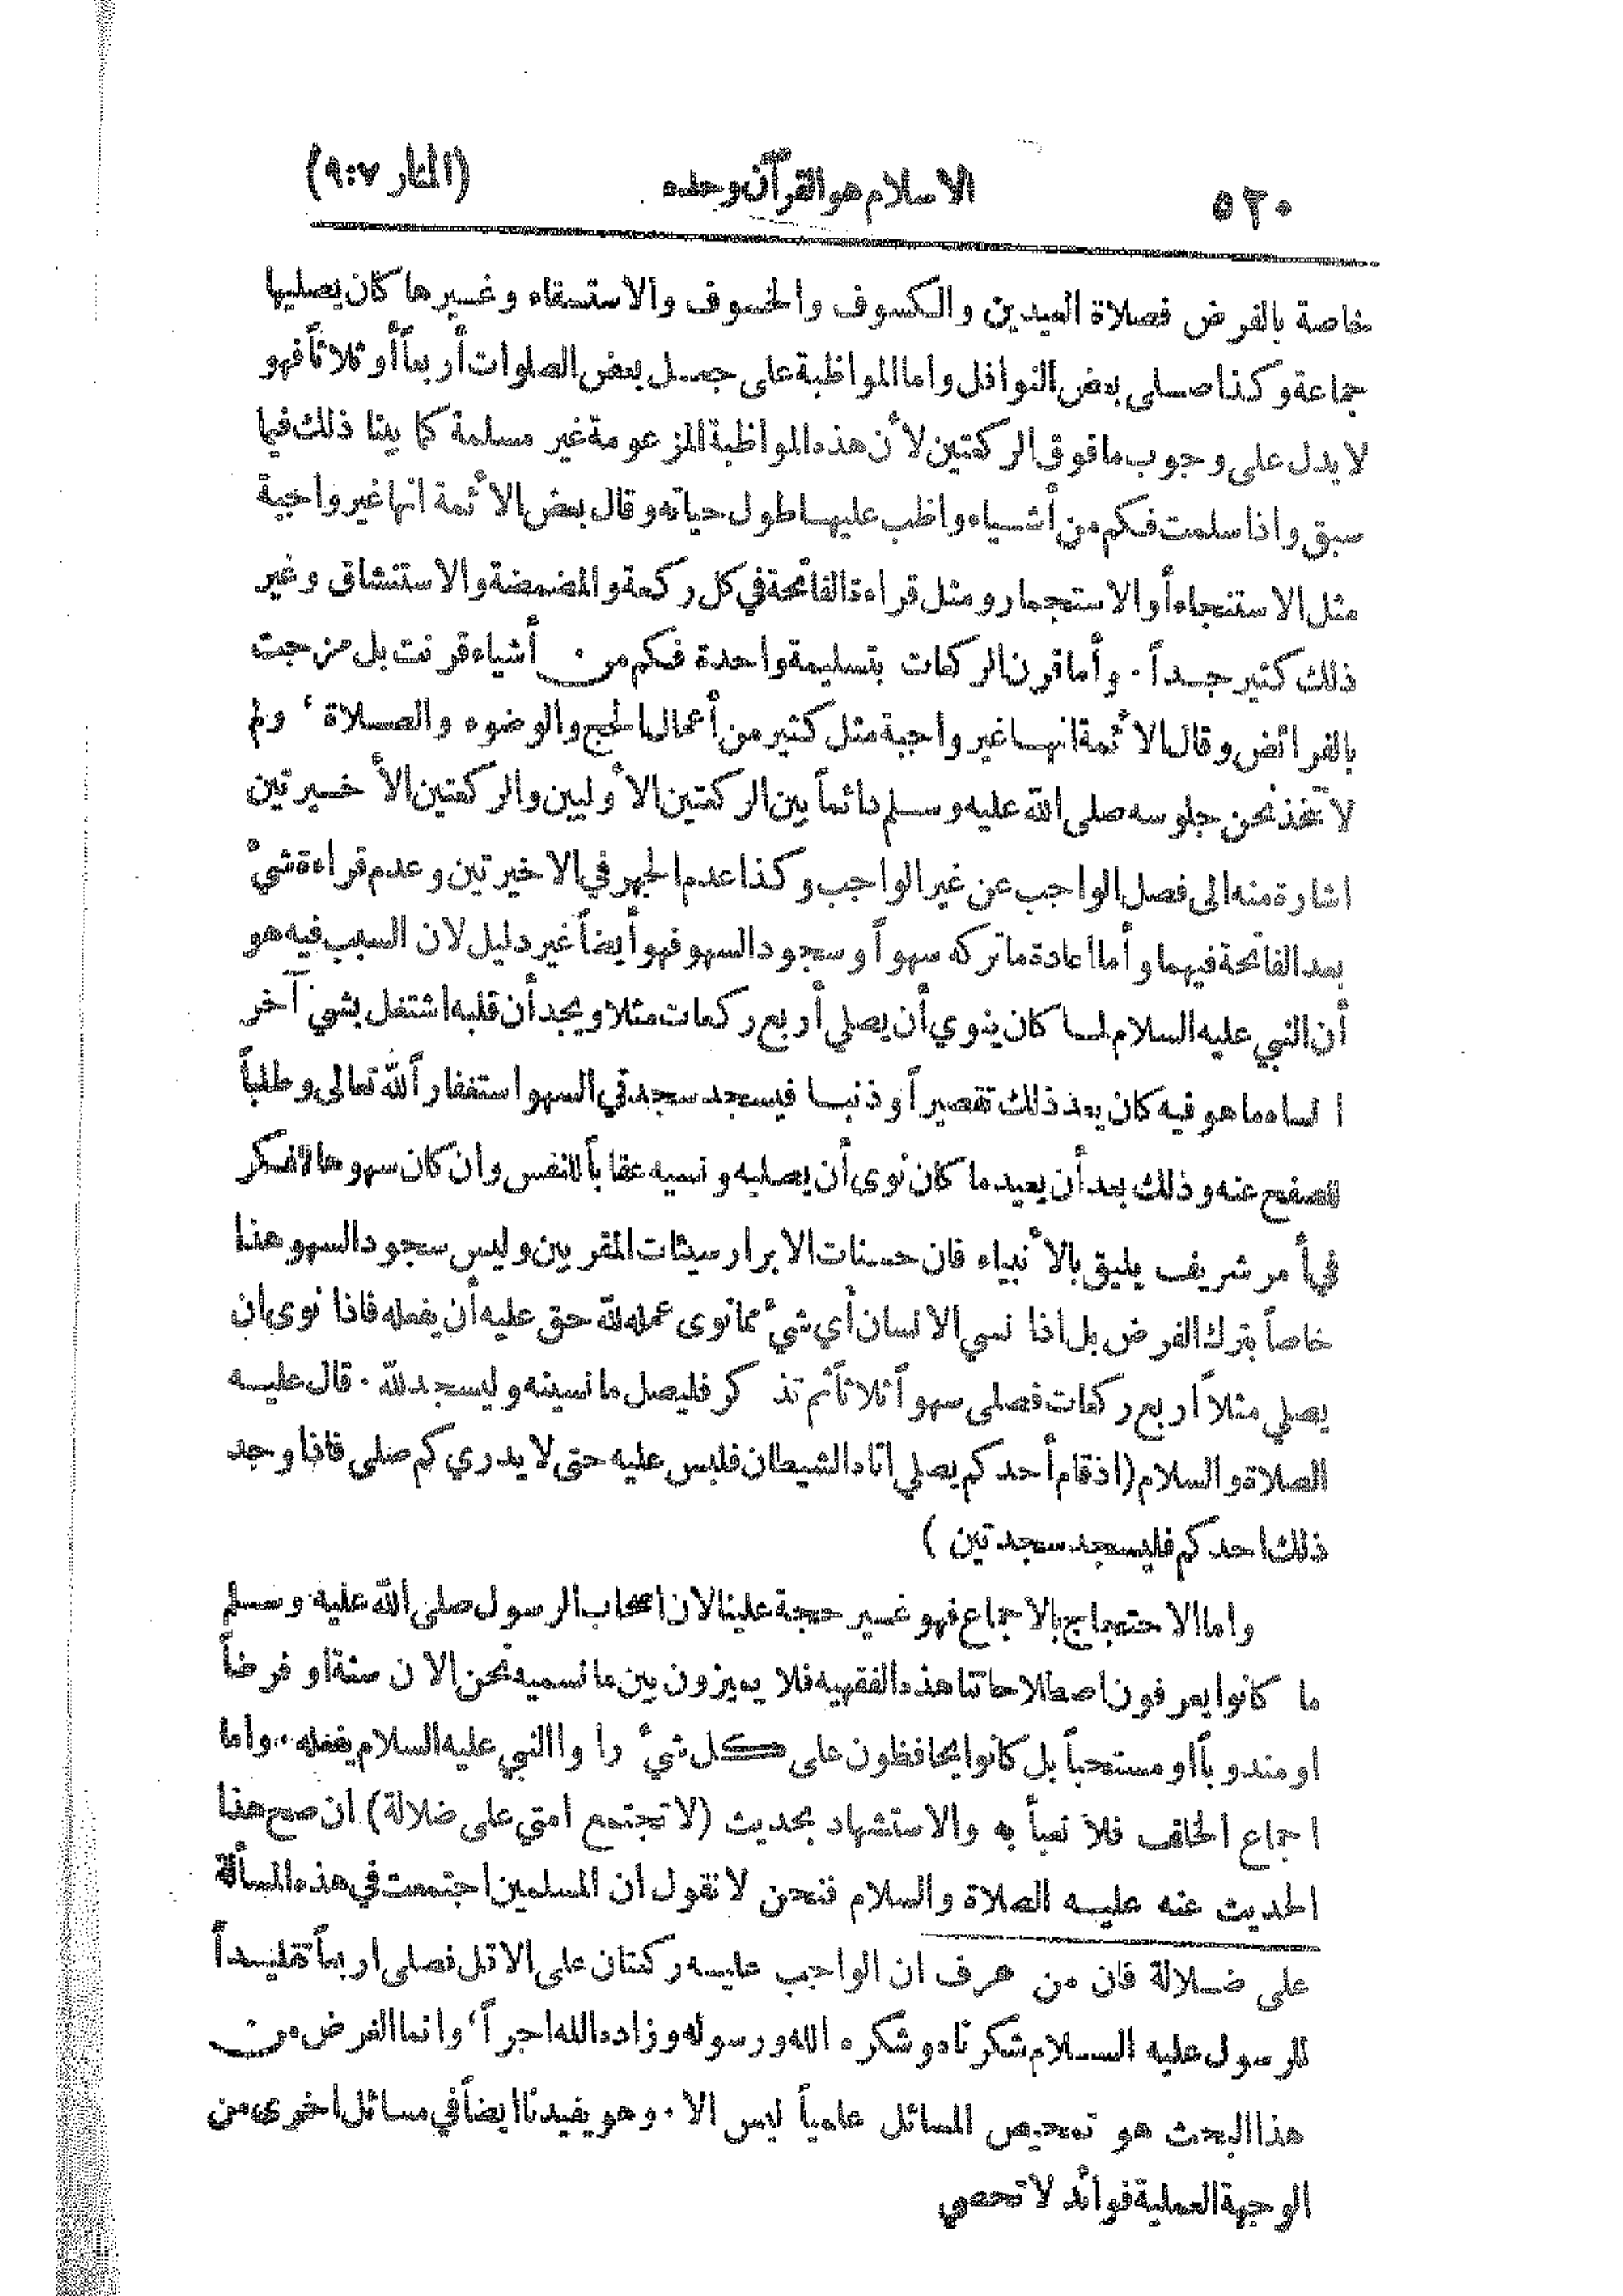 ٥٢٠ الاسلام هو القرآن وحده (المنار ٩:٧)
خاصة بالفرض فصلاة العيدين والكسوف والخسوف والاستسقاء وغيرها كان يصليها
جماعة وكذا صلى بعض النوافل واما المواظبة على جعل بعض الصلوات أربعاً أو ثلاثاً فهو
لا يدل على وجوب ما فوق الركعتين لأن هذه المواظبة المزعومة غير مسلمة كما بينا ذلك فيما
سبق واذا سلمت فكم من أشياء واظب عليها طول حياته وقال بعض الأئمة انها غير واجبة
مثل الاستنجاء أو الاستجمار ومثل قراءة الفاتحة في كل ركعة والمضمضة والاستنشاق وغير
ذلك كثير جداً . وأما قرن الركعات بتسليمة واحدة فكم من أشياء قرنت بل مزجت
بالفرائض وقال الأئمة انها غير واجبة مثل كثير من أعمال الحج والوضوء والصلاة ، ولم
لا نتخذ نحن جلوسه صلى الله عليه وسلم دائماً بين الركعتين الأوليين والركعتين الأخيرتين
اشارة منه الى فصل الواجب عن غير الواجب وكذا عدم الجهر في الاخيرتين وعدم قراءة شيء
بعد الفاتحة فيهما وأما اعادة ما تركه سهواً وسجود السهو فهو أيضاً غير دليل لان السبب فيه هو
أن النبي عليه السلام لما كان ينوي أن يصلي أربع ركعات مثلا ويجد أن قلبه اشتغل بشيء آخر
انساه ما هو فيه كان يعد ذلك تقصيراً وذنبا فيسجد سجدتي السهو استغفاراً لله تعالى وطلباً
للصفح عنه وذلك بعد أن يعيد ما كان نوى أن يصليه ونسيه عقاباً للنفس وان كان سهوها لتفكر
في أمر شريف يليق بالأنبياء فان حسنات الابرار سيئات المقربين وليس سجود السهو هنا
خاصاً بترك الفرض بل اذا نسي الانسان أي شيء مما نوى عمله لله حق عليه أن يفعله فاذا نوى ان
يصلي مثلاً أربع ركعات فصلى سهواً ثلاثاً ثم تذكر فليصل ما نسيته وليسجد لله . قال عليه
الصلاة والسلام (اذ قام أحدكم يصلي اتاه الشيطان فلبس عليه حتى لا يدري كم صلى فاذا وجد
ذلك احدكم فليسجد سجدتين )
واما الاحتجاج بالاجماع فهو غير حجة علينا لان اصحاب الرسول صلى الله عليه وسلم
ما كانوا يعرفون اصطلاحاتنا هذه الفقهيه فلا يميزون بين ما نسميه نحن الان سنة او فرضاً
او مندوباً او مستحباً بل كانوا يحافظون على كل شيء راوا النبي عليه السلام يفعله . واما
اجماع الخلف فلا نعبأ به والاستشهاد بحديث (لا تجتمع امتي على ضلالة) ان صح هذا
الحديث عنه عليه الصلاة والسلام فنحن لا نقول ان المسلمين اجتمعت في هذه المسألة
على ضلالة فان من عرف ان الواجب عليه ركعتان على الاقل فصلى اربعاً تقليداً
للرسول عليه السلام شكرناه وشكره الله ورسوله وزاده الله اجراً ، وانما الغرض من
هذا البحث هو تمحيص المسائل علمياً ليس الا . وهو يفيدنا ايضاً في مسائل اخرى من
الوجهة العملية فوائد لا تحصى